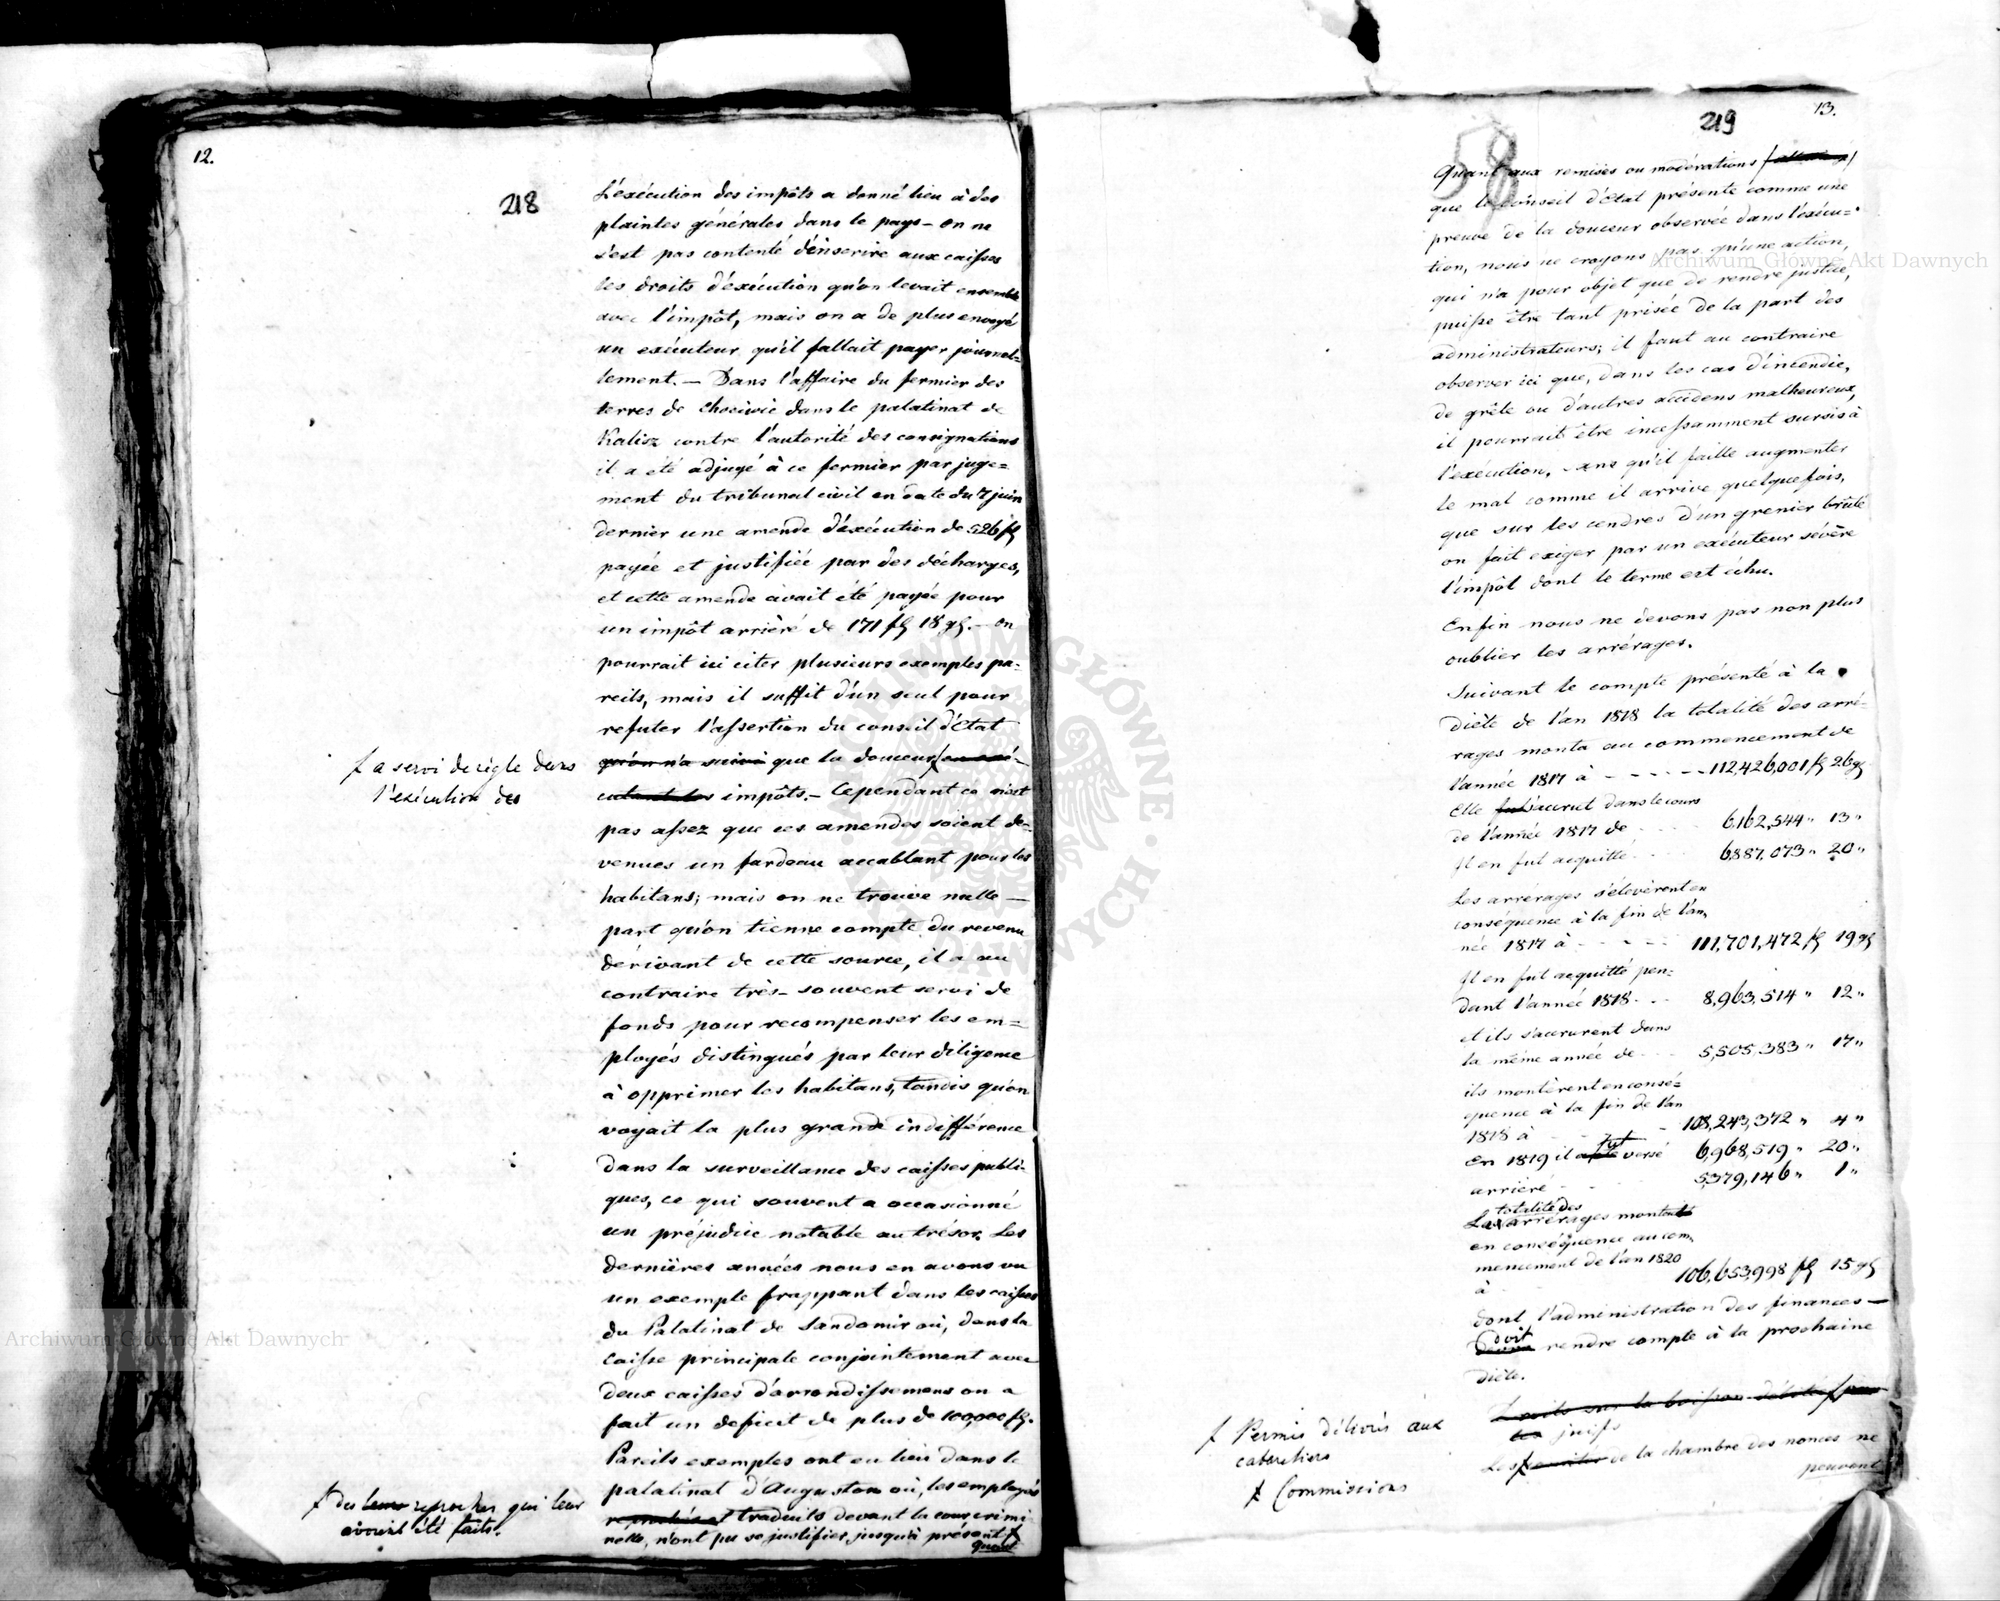 12.
218
L'exécution des impôts a donné lieu à des
plaintes générales dans le pays – on ne
s'est pas contenté d'inscrire aux caisses
les droits d'exécution qu'on levait ensemble
avec l'impôt, mais on a de plus envoyé
un exécuteur qu'il fallait payer journel=
lement. – Dans l'affaire du fermier des
terres de Chociwie dans le palatinat de
Kalisz contre l'autorité des consignations
il a été adjugé à ce fermier par juge=
ment du tribunal civil en date du 7 juin
dernier une amende d'exécution de 526 fl
payée et justifiée par des décharges,
et cette amende avait été payée pour
un impôt arriéré de 171 fl 18 gl. – on
pourrait ici citer plusieurs exemples pa=
reils, mais il suffit d'un seul pour
refuter l'assertion du conseil d'Etat
qu'on n'a suivi que la douceur en exé-
cutant les impôts. – Cependant ce n'est
f a servi de règle dans
l'exécution des
pas assez que ces amendes soient de=
venues un fardeau accablant pour les
habitans; mais on ne trouve nulle –
part qu'on tienne compte du revenu
dérivant de cette source, il a au
contraire très-souvent servi de
fonds pour recompenser les em=
ployés distingués par leur diligence
à opprimer les habitans, tandis qu'on
voyait la plus grande indifférence
dans la surveillance des caisses publi-
ques, ce qui souvent a occasionné
un préjudice notable au trésor. Les
dernières années nous en avons vu
un exemple frappant dans les caisses
du Palatinat de Sandomir où, dans la
Caisse principale conjointement avec
deux caisses d'arrondissemens on a
fait un deficit de plus de 100,000 fl.
Pareils exemples ont eu lieu dans le
palatinat d'Augustow où, les employés
traduits devant la cour crimi
nelle, n'ont pu se justifier, jusqu'à présent f
f des leurs reproches qui leur
avaient été faits.
Quant
219
13.
58
Quant aux remises ou modérations
que le conseil d'Etat présente comme une
preuve de la douceur observée dans l'exécu=
tion, nous ne croyons pas, qu'une action,
qui n'a pour objet que de rendre justice,
puisse être tant prisée de la part des
administrateurs; il faut au contraire
observer ici que, dans les cas d'incendie,
de grêle ou d'autres accidens malheureux,
il pourrait être incessamment sursis à
l'exécution, sans qu'il faille augmenter
le mal comme il arrive quelquefois,
que sur les cendres d'un grenier brûlé
on fait exiger par un exécuteur sévère
l'impôt dont le terme est échu.
Enfin nous ne devons pas non plus
oublier les arrérages.
Suivant le compte présenté à la
diète de l'an 1818 la totalité des arré-
rages monta au commencement de
l'année 1817 à - - - - 112,426,001 fl 26 gl
Elle fut s'accrut dans le cours
de l'année 1817 de 6,162,544 " 13 "
Il en fut acquitté 6,887,073 " 20 "
Les arrérages s'élevèrent en
conséquence à la fin de l'an,
née 1817 à - - - - 111,701,472 fl 19 gl
Il en fut acquitté pen=
dant l'année 1818 - - 8,963,514 " 12 "
et ils s'accrurent dans
la même année de 5,505,383 " 17 "
ils montèrent en consé=
quence à la fin de l'an
1818 à - 108,243,372 " 4 "
En 1819 il a été fut versé 6,968,519 " 20 "
arriéré 5,379,146 " 1 "
totalité des
Les arrérages montent
en conséquence au com,
mencement de l'an 1820
à 106,653,998 fl 15 gl
dont l'administration des finances –
doit
devra rendre compte à la prochaine
diète.
Droits sur la boisson débitée par
les juifs
f Permis délivrés aux
cabaretiers
Les f comités de la chambre des nonces ne
f Commissions
peuvent
Archiwum Główne Akt Dawnych
Archiwum Główne Akt Dawnych
ARCHIWUM GŁÓWNE AKT DAWNYCH